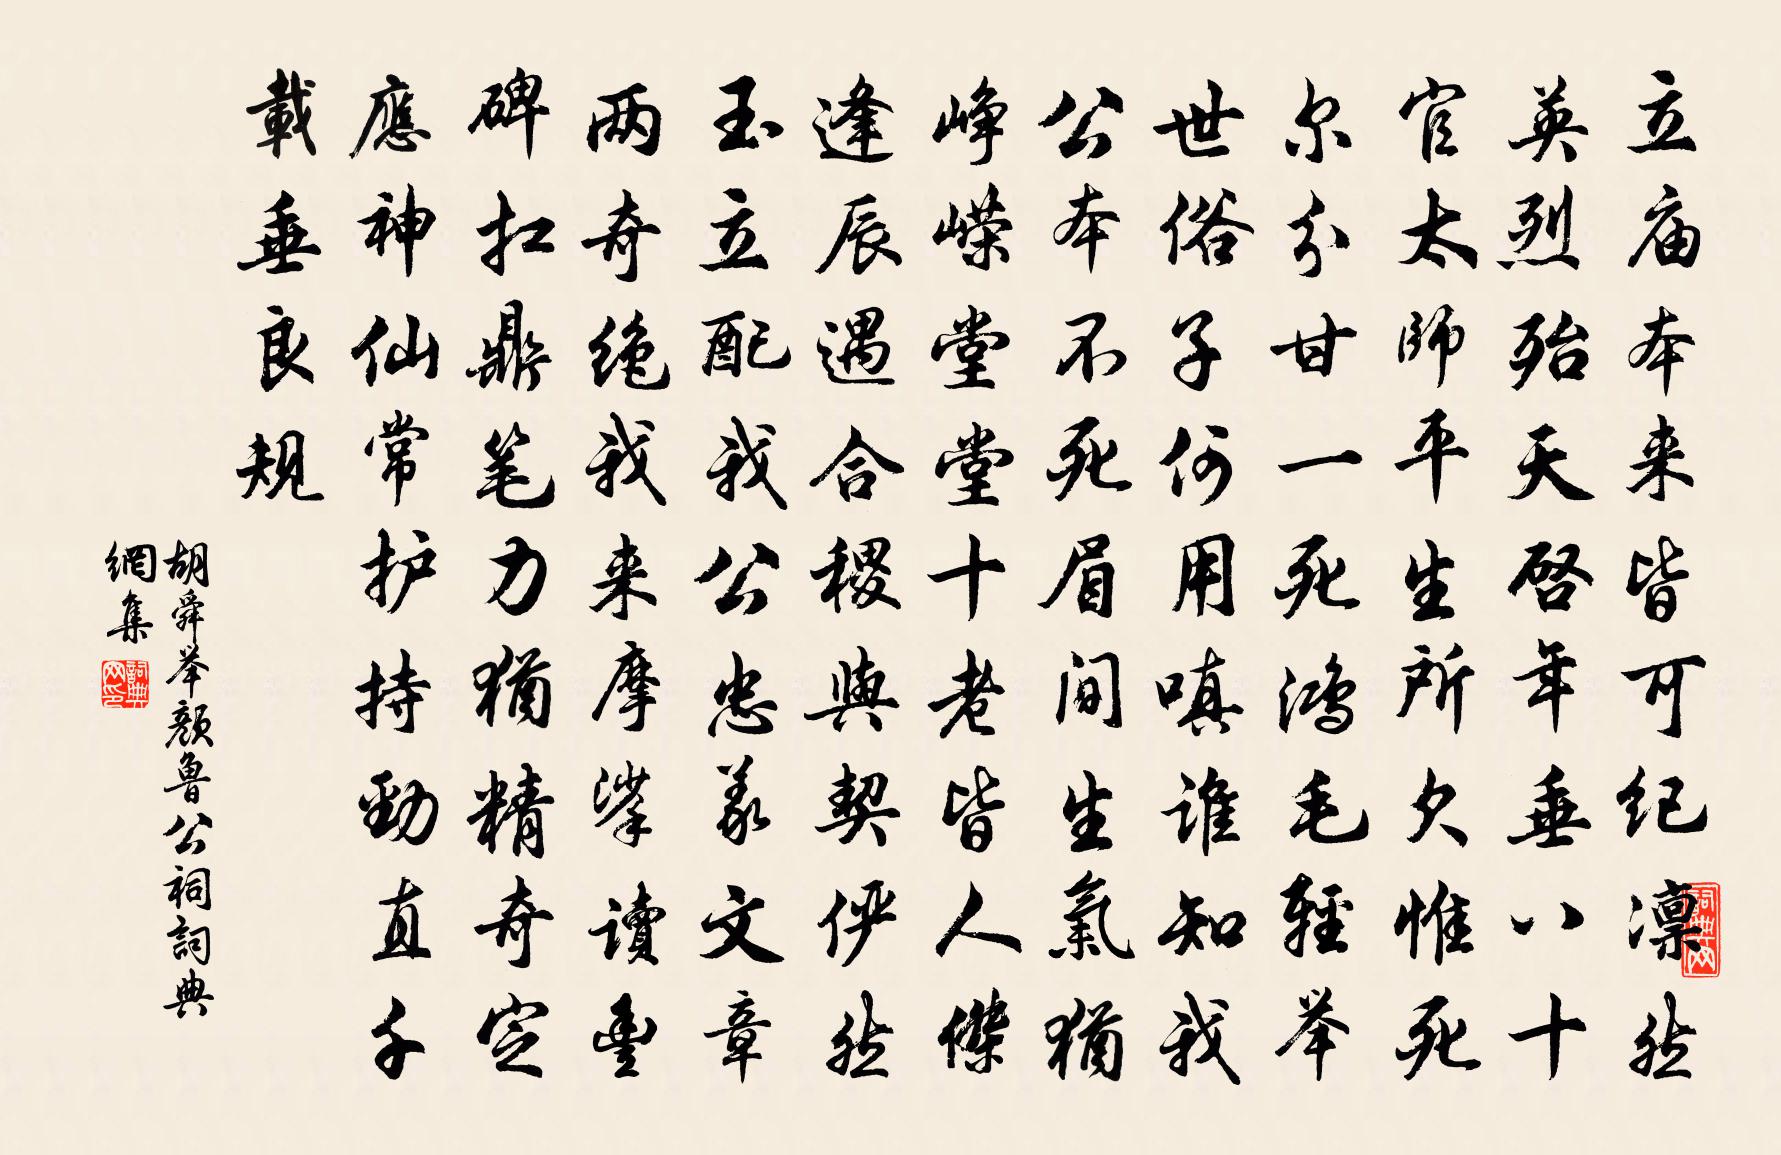 立庙本来皆可纪凛然
英烈殆天啓年垂八十
官太師平生所欠惟死
尔分甘一死鸿毛輕举
世俗子何用嗔谁知我
公本不死眉间生氣猶
峥嵘堂堂十老皆人傑
逢辰遇合稷與契俨然
玉立配我公忠义文章
两奇绝我来摩挲讀豊
碑扛鼎笔力猶精奇定
應神仙常护持勁直千
載垂良规
胡舜举颜魯公祠詞典
網集
詞典网
詞典网印